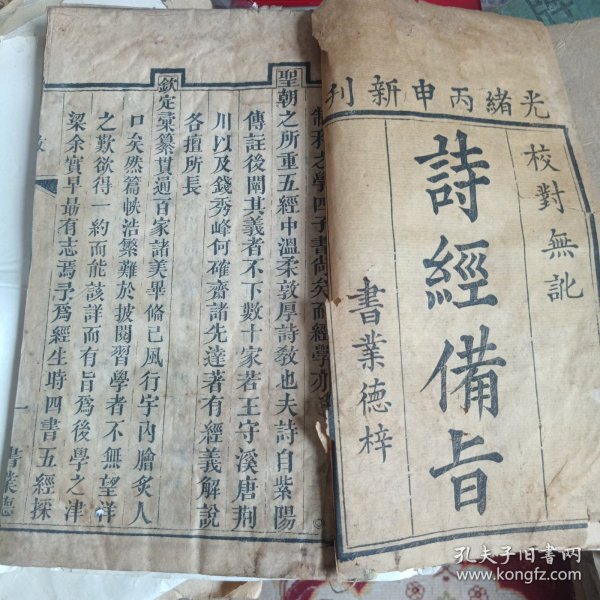 光緒丙申新刊
校對無訛
詩經備旨
書業德梓
制科之學四子書尚矣而經學亦
聖朝之所重五經中溫柔敦厚詩教也夫詩自紫陽
傳註後闡其義者不下數十家若王守溪唐荆
川以及錢秀峰何確齋諸先達著有經義解說
各擅所長
欽定彙纂貫通百家諸美畢備已風行宇內膾炙人
口矣然篇帙浩繁難於披閱習學者不無望洋
之歎欲得一約而能該詳而有旨為後學之津
梁余實早最有志焉予為經生時四書五經採
一
書業德
孔夫子旧书网
www.kongfz.com